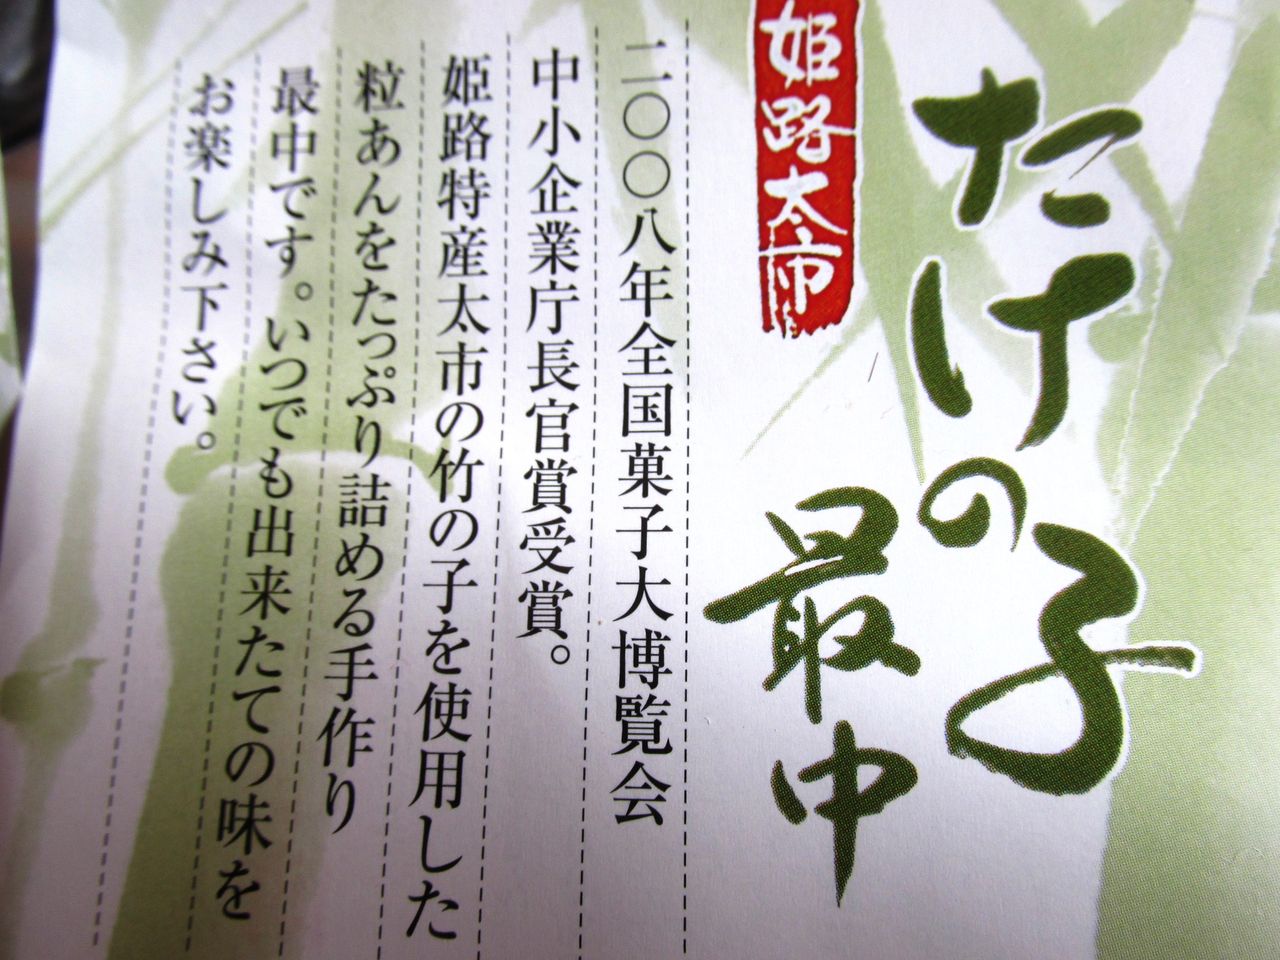 たけの子
最中
姫路太市
二〇〇八年全国菓子大博覧会
中小企業庁長官賞受賞。
姫路特産太市の竹の子を使用した
粒あんをたっぷり詰める手作り
最中です。いつでも出来たての味を
お楽しみ下さい。